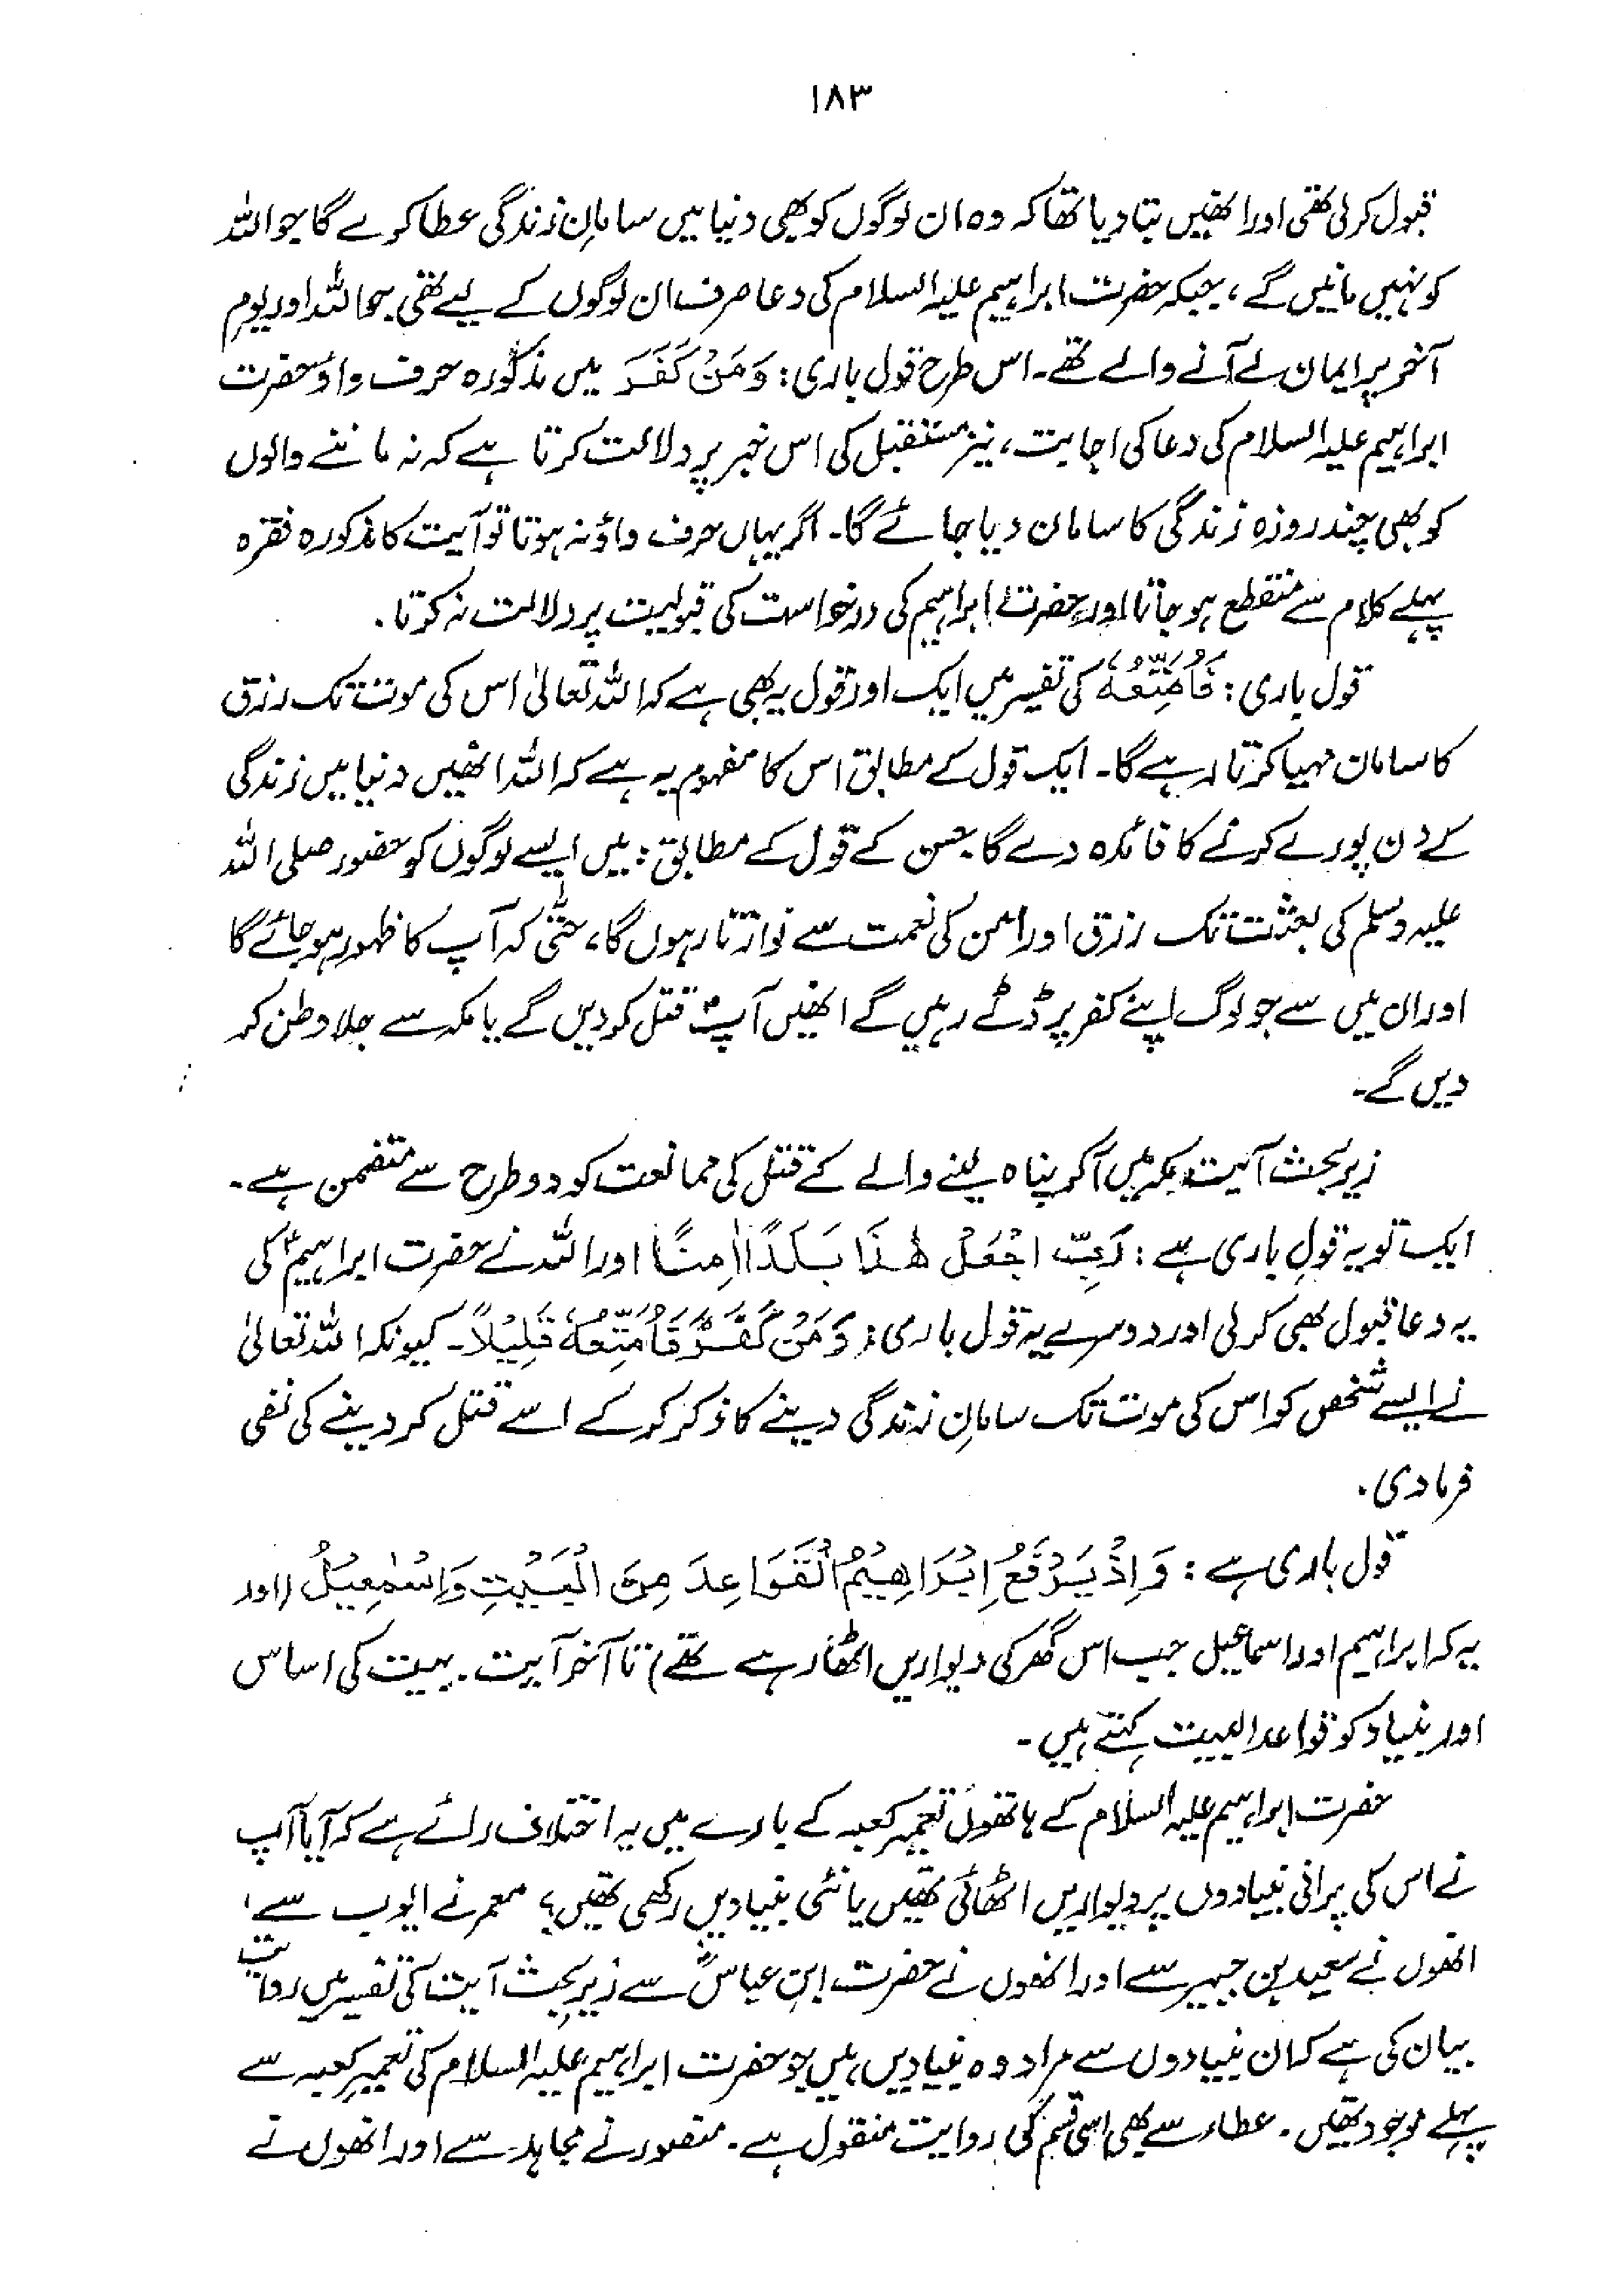 ۱۸۳
قبول کر لی تھی اور انھیں بتا دیا تھا کہ وہ ان لوگوں کو بھی دنیا میں سامانِ زندگی عطا کرے گا جو اللہ
کو نہیں مانیں گے، جبکہ حضرت ابراہیم علیہ السلام کی دعا صرف ان لوگوں کے لیے تھی جو اللہ اور یومِ
آخر پر ایمان لے آنے والے تھے۔ اس طرح قول باری: وَمَنْ كَفَرَ میں مذکورہ حرف واؤ حضرت
ابراہیم علیہ السلام کی دعا کی اجابت، نیز مستقبل کی اس خبر پر دلالت کرتا ہے کہ نہ ماننے والوں
کو بھی چند روزہ زندگی کا سامان دیا جائے گا۔ اگر یہاں حرف واؤ نہ ہوتا تو آیت کا مذکورہ فقرہ
پہلے کلام سے منقطع ہو جاتا اور حضرت ابراہیم کی درخواست کی قبولیت پر دلالت نہ کرتا۔
قول باری: فَاُمَتِّعُهٗ کی تفسیر میں ایک اور قول یہ بھی ہے کہ اللہ تعالیٰ اس کی موت تک رزق
کا سامان مہیا کرتا رہے گا۔ ایک قول کے مطابق اس کا مفہوم یہ ہے کہ اللہ انھیں دنیا میں زندگی
کے دن پورے کرنے کا فائدہ دے گا۔ حسن کے قول کے مطابق: میں ایسے لوگوں کو حضور صلی اللہ
علیہ وسلم کی بعثت تک رزق اور امن کی نعمت سے نوازتا رہوں گا، حتّٰی کہ آپ کا ظہور ہو جائے گا
اور ان میں سے جو لوگ اپنے کفر پر ڈٹے رہیں گے انھیں آپؐ قتل کر دیں گے یا مکہ سے جلا وطن کر
دیں گے۔
زیر بحث آیت مکہ میں آ کر پناہ لینے والے کے قتل کی ممانعت کو دو طرح سے متضمن ہے۔
ایک تو یہ قولِ باری ہے: رَبِّ اجْعَلْ هٰذَا بَلَدًا اٰمِنًا اور اللہ نے حضرت ابراہیمؑ کی
یہ دعا قبول بھی کر لی اور دوسرے یہ قول باری: وَمَنْ كَفَرَ فَاُمَتِّعُهٗ قَلِيْلًا۔ کیونکہ اللہ تعالیٰ
نے ایسے شخص کو اس کی موت تک سامانِ زندگی دینے کا ذکر کر کے اسے قتل کر دینے کی نفی
فرما دی۔
قول باری ہے: وَاِذْ يَرْفَعُ اِبْرَاهِيْمُ الْقَوَاعِدَ مِنَ الْبَيْتِ وَاِسْمٰعِيْلُ (اور
یہ کہ ابراہیم اور اسماعیل جب اس گھر کی دیواریں اٹھا رہے تھے) تا آخر آیت۔ بیت کی اساس
اور بنیاد کو قواعد البیت کہتے ہیں۔
حضرت ابراہیم علیہ السلام کے ہاتھوں تعمیر کعبہ کے بارے میں یہ اختلاف رائے ہے کہ آیا آپ
نے اس کی پرانی بنیادوں پر دیواریں اٹھائی تھیں یا نئی بنیادیں رکھی تھیں؟ معمر نے ایوب سے،
انھوں نے سعید بن جبیر سے اور انھوں نے حضرت ابنِ عباسؓ سے زیرِ بحث آیت کی تفسیر میں روایت
بیان کی ہے کہ ان بنیادوں سے مراد وہ بنیادیں ہیں جو حضرت ابراہیم علیہ السلام کی تعمیرِ کعبہ سے
پہلے موجود تھیں۔ عطاء سے بھی اسی قسم کی روایت منقول ہے۔ منصور نے مجاہد سے اور انھوں نے